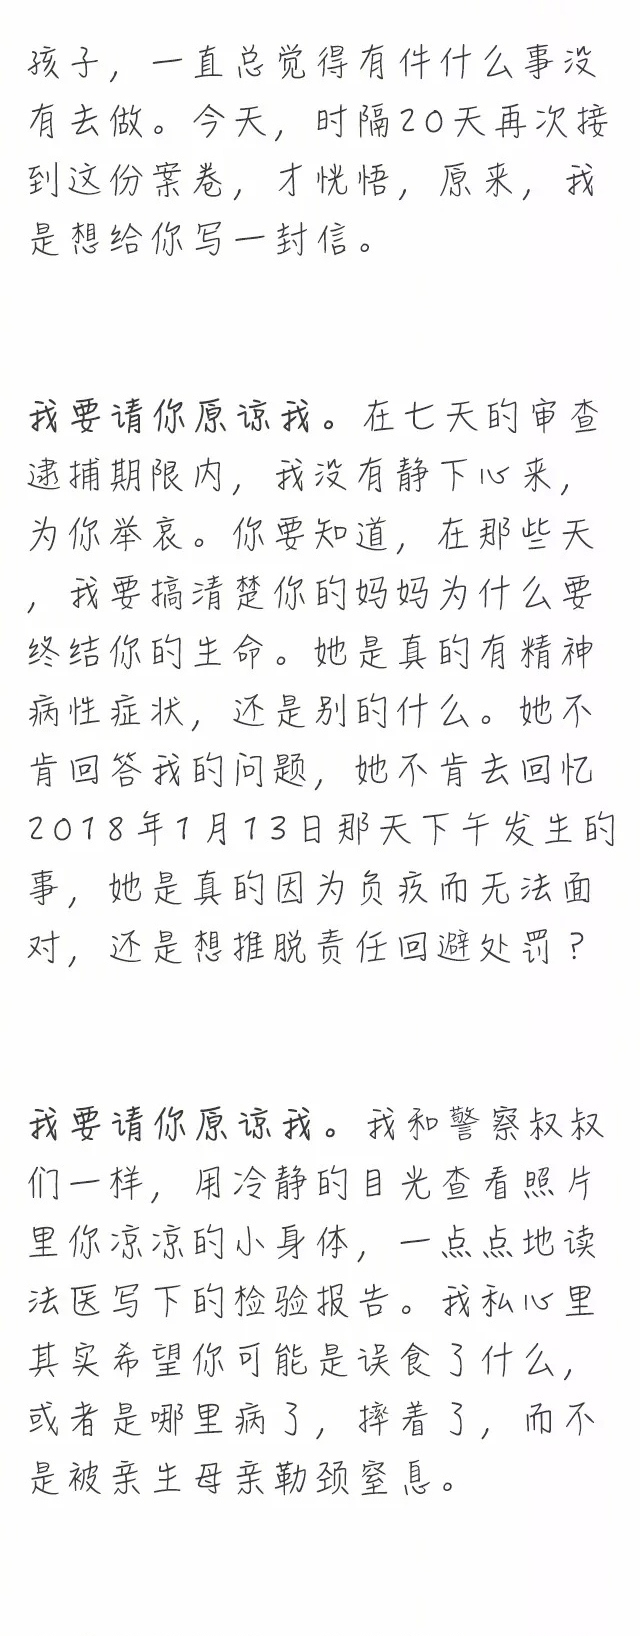 孩子，一直总觉得有件什么事没
有去做。今天，时隔20天再次接
到这份案卷，才恍悟，原来，我
是想给你写一封信。
我要请你原谅我。在七天的审查
逮捕期限内，我没有静下心来，
为你举哀。你要知道，在那些天
，我要搞清楚你的妈妈为什么要
终结你的生命。她是真的有精神
病性症状，还是别的什么。她不
肯回答我的问题，她不肯去回忆
2018年1月13日那天下午发生的
事，她是真的因为负疚而无法面
对，还是想推脱责任回避处罚？
我要请你原谅我。我和警察叔叔
们一样，用冷静的目光查看照片
里你凉凉的小身体，一点点地读
法医写下的检验报告。我私心里
其实希望你可能是误食了什么，
或者是哪里病了，摔着了，而不
是被亲生母亲勒颈窒息。